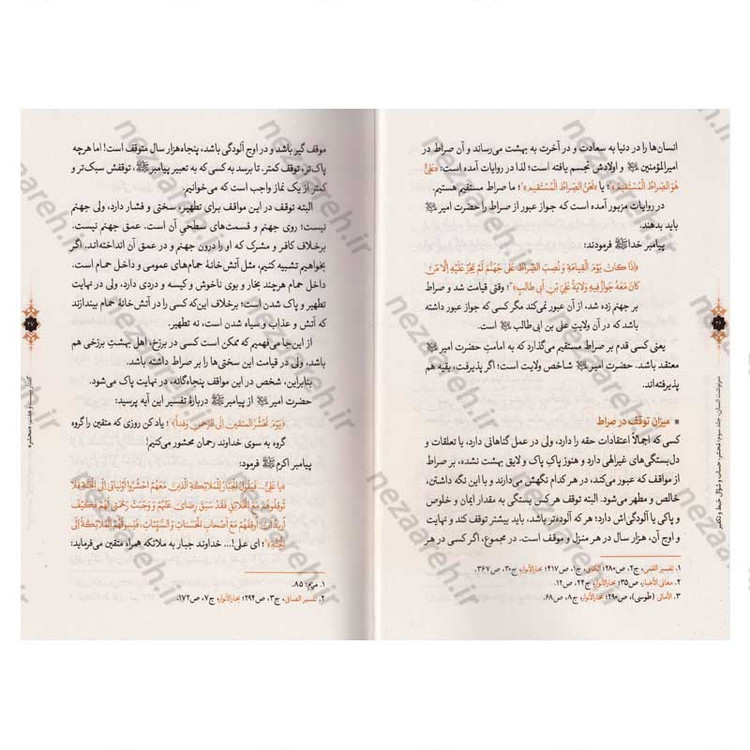 انسان‌ها را در دنیا به سعادت و در آخرت به بهشت می‌رساند و آن صراط در
امیرالمؤمنین ﷺ و اولادش تجسم یافته است؛ لذا در روایات آمده است: «عَلِیٌّ
هُوَ الصِّرَاطُ الْمُسْتَقِیمُ»۱ یا «نَحْنُ الصِّرَاطُ الْمُسْتَقِیمُ»۲؛ ما صراط مستقیم هستیم.
در روایات مزبور آمده است که جواز عبور از صراط را حضرت امیر
باید بدهند.
پیامبر خدا ﷺ فرمودند:
«إِذَا كَانَ یَوْمُ الْقِیَامَةِ وَ نُصِبَ الصِّرَاطُ عَلَى جَهَنَّمَ لَمْ یَجُزْ عَلَیْهِ إِلَّا مَنْ
كَانَ مَعَهُ جَوَازٌ فِیهِ وَلَایَةُ عَلِیِّ بْنِ أَبِی طَالِبٍ»۳؛ وقتی قیامت شد و صراط
بر جهنم زده شد، از آن عبور نمی‌کند مگر کسی که جواز عبور داشته
باشد که در آن ولایت علی بن ابی‌طالب است.
یعنی کسی قدم بر صراط مستقیم می‌گذارد که به امامتِ حضرت امیر
معتقد باشد. حضرت امیر شاخص ولایت است؛ اگر پذیرفت، بقیه هم
پذیرفته‌اند.
■ میزان توقف در صراط
کسی که اجمالاً اعتقادات حقه را دارد، ولی در عمل گناهانی دارد، یا تعلقات و
دل‌بستگی‌های غیرالهی دارد و هنوز پاکِ پاک و لایق بهشت نشده، بر صراط
از مواقف که عبور می‌کند، در هر کدام نگهش می‌دارند و با این نگه داشتن،
خالص و مطهر می‌شود. البته توقف هر کس بستگی به مقدار ایمان و خلوص
و پاکی یا آلودگی‌اش دارد؛ هر که آلوده‌تر باشد، باید بیشتر توقف کند و نهایت
و اوج آن، هزار سال در هر منزل و موقف است. در مجموع، اگر کسی در هر
۱. تفسیر القمی، ج۲، ص۲۸۰؛ الکافی، ج۱، ص۴۱۷؛ بحارالأنوار، ج۳۰، ص۳۶۷.
۲. معانی الأخبار، ص۳۵؛ بحارالأنوار، ج۲۴، ص۱۲.
۳. الأمالی (طوسی)، ص۲۹۰؛ بحارالأنوار، ج۸، ص۶۸.
موقف گیر باشد و در اوج آلودگی باشد، پنجاه‌هزار سال متوقف است! اما هرچه
پاک‌تر، توقف کمتر. تا برسد به کسی که به تعبیر پیامبر ﷺ، توقفش سبک‌تر و
کمتر از یک نماز واجب است که می‌خوانیم.
البته توقف در این مواقف برای تطهیر، سختی و فشار دارد، ولی جهنم
نیست؛ روی جهنم و قسمت‌های سطحی آن است. عمق جهنم نیست.
برخلاف کافر و مشرک که او را درون جهنم و در عمق آن انداخته‌اند. اگر
بخواهیم تشبیه کنیم، مثل آتش‌خانهٔ حمام‌های عمومی و داخل حمام است.
داخل حمام هرچند بخار و بوی ناخوش و کیسه و دردی دارد، ولی در نهایت
تطهیر و پاک شدن است؛ برخلاف این‌که کسی را در آتش‌خانهٔ حمام بیندازند
که آتش و عذاب و سیاه شدن است، نه تطهیر.
از این‌جا می‌فهمیم که ممکن است کسی در برزخ، اهل بهشتِ برزخی هم
باشد، ولی در قیامت این سختی‌ها را بر صراط داشته باشد.
بنابراین، شخص در این مواقف پنجاه‌گانه، در نهایت پاک می‌شود.
حضرت امیر از پیامبر ﷺ دربارهٔ تفسیر این آیه پرسید:
«یَوْمَ نَحْشُرُ الْمُتَّقِینَ إِلَى الرَّحْمَنِ وَفْداً»۱؛ یاد کن روزی که متقین را گروه
گروه به سوی خداوند رحمان محشور می‌کنیم!
پیامبر اکرم ﷺ فرمود:
الْجَنَّةِ»۲؛ ای علی!... خداوند جبار به ملائکه همراه متقین می‌فرماید:
۱. مریم: ۸۵.
۲. تفسیر الصافی، ج۳، ص۲۹۴؛ بحارالأنوار، ج۷، ص۱۷۲.
nezaareh.ir